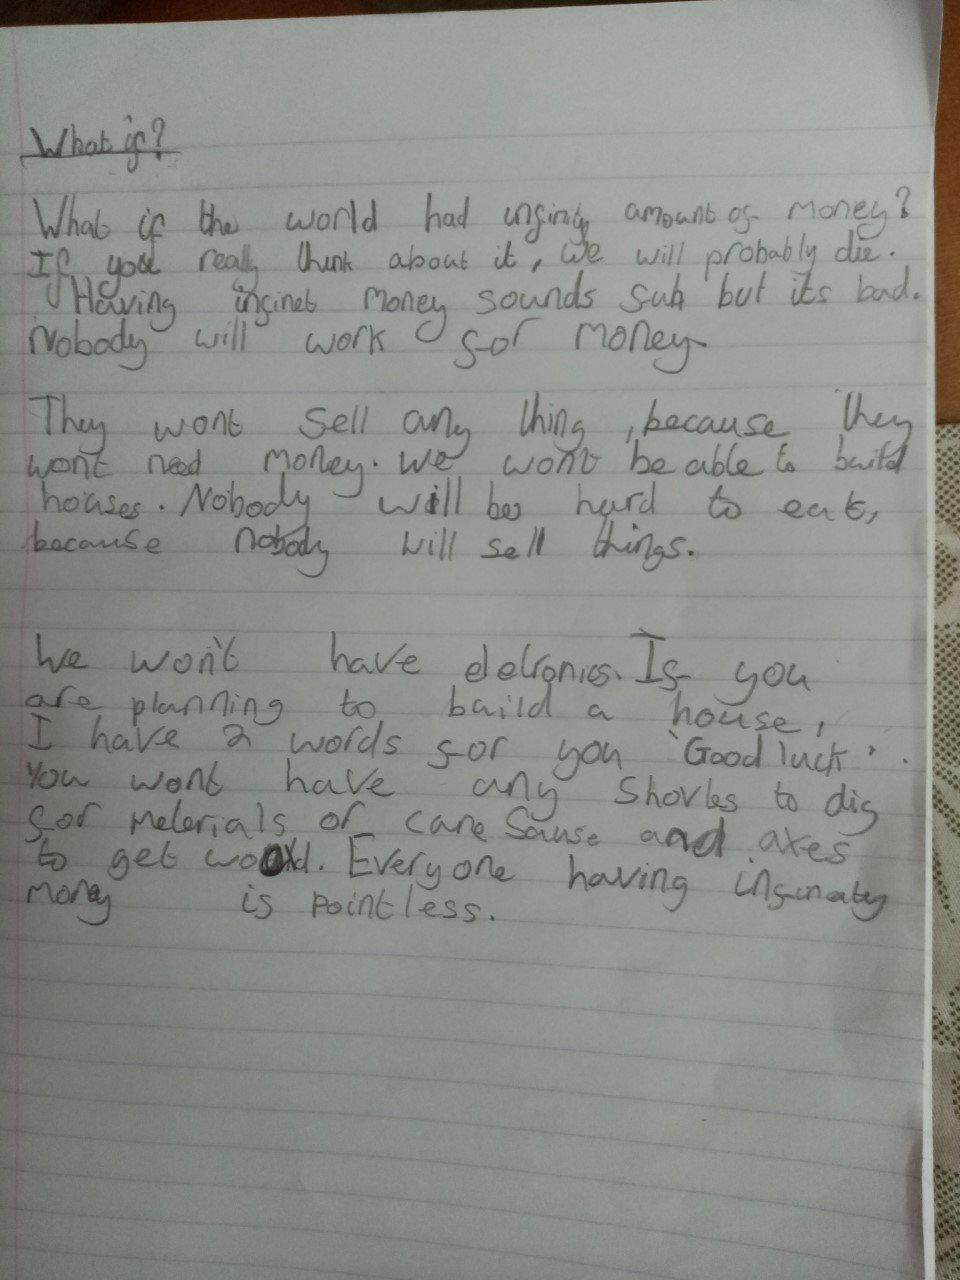 What if?
What if the world had infinity amount of money?
If you really think about it, we will probably die.
Having infinet money sounds fun but its bad.
Nobody will work for money
They wont sell any thing, because they
wont need money. We won't be able to baild
houses. Nobody will be hard to eat,
because nobody will sell things.
We won't have eletronics. If you
are planning to baild a house,
I have 2 words for you 'Good luck'.
You wont have any shovles to dig
for meterials or cane and axes
to get wood. Everyone having infinaty
money is pointless.